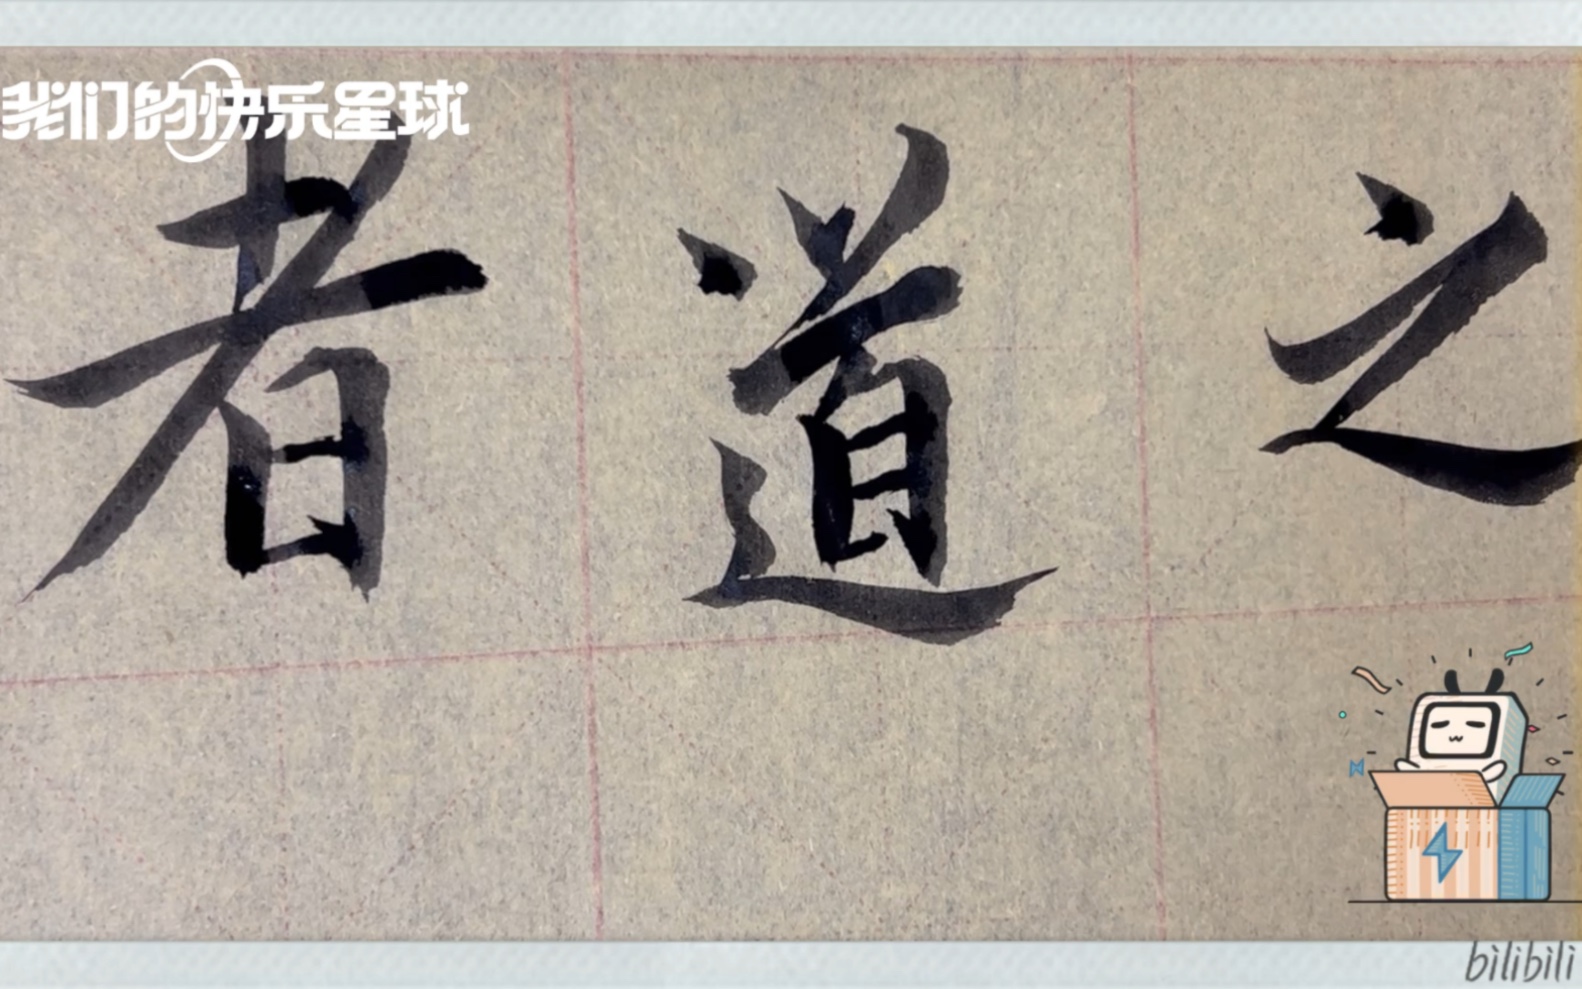 我们的快乐星球
者道之
bilibili